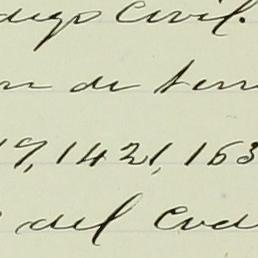 digo Civil.
on de terr
19, 1421, 163
del Cod